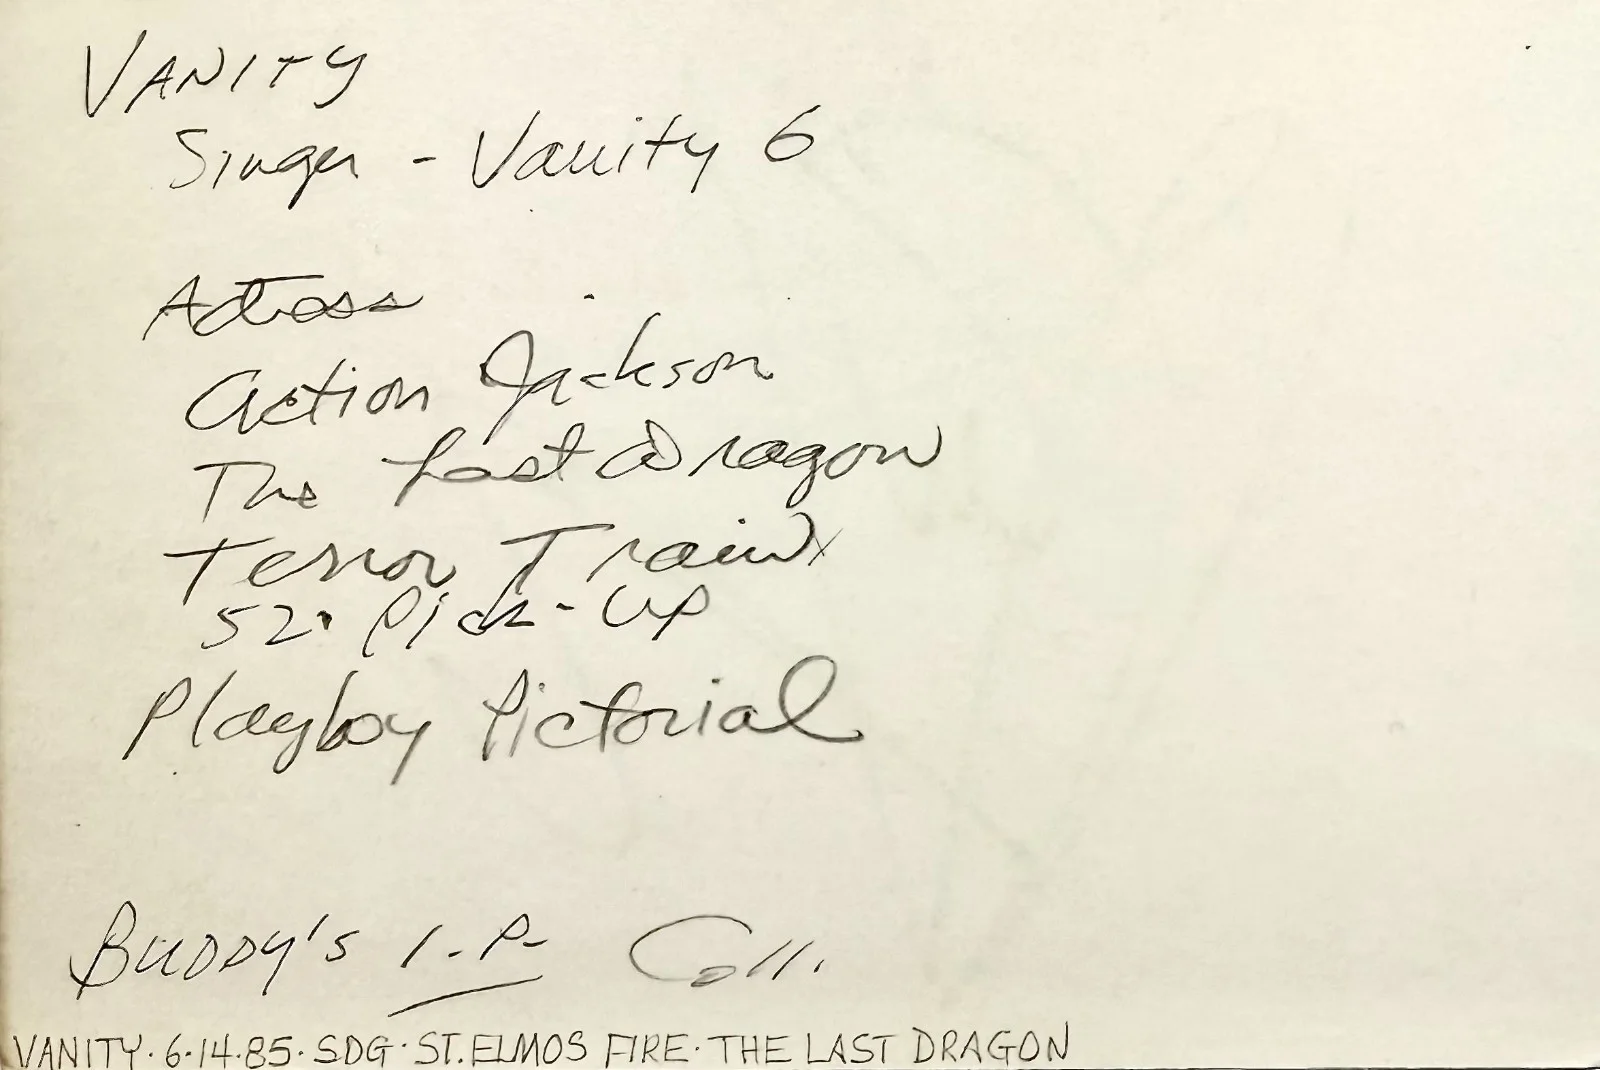 VANITY
Singer - Vanity 6
Actress
Action Jackson
The Last Dragon
Terror Train
52. Pick-Up
Playboy Pictorial
BUDDY'S I.P. Coll.
VANITY·6·14·85·SDG·ST.ELMOS FIRE·THE LAST DRAGON